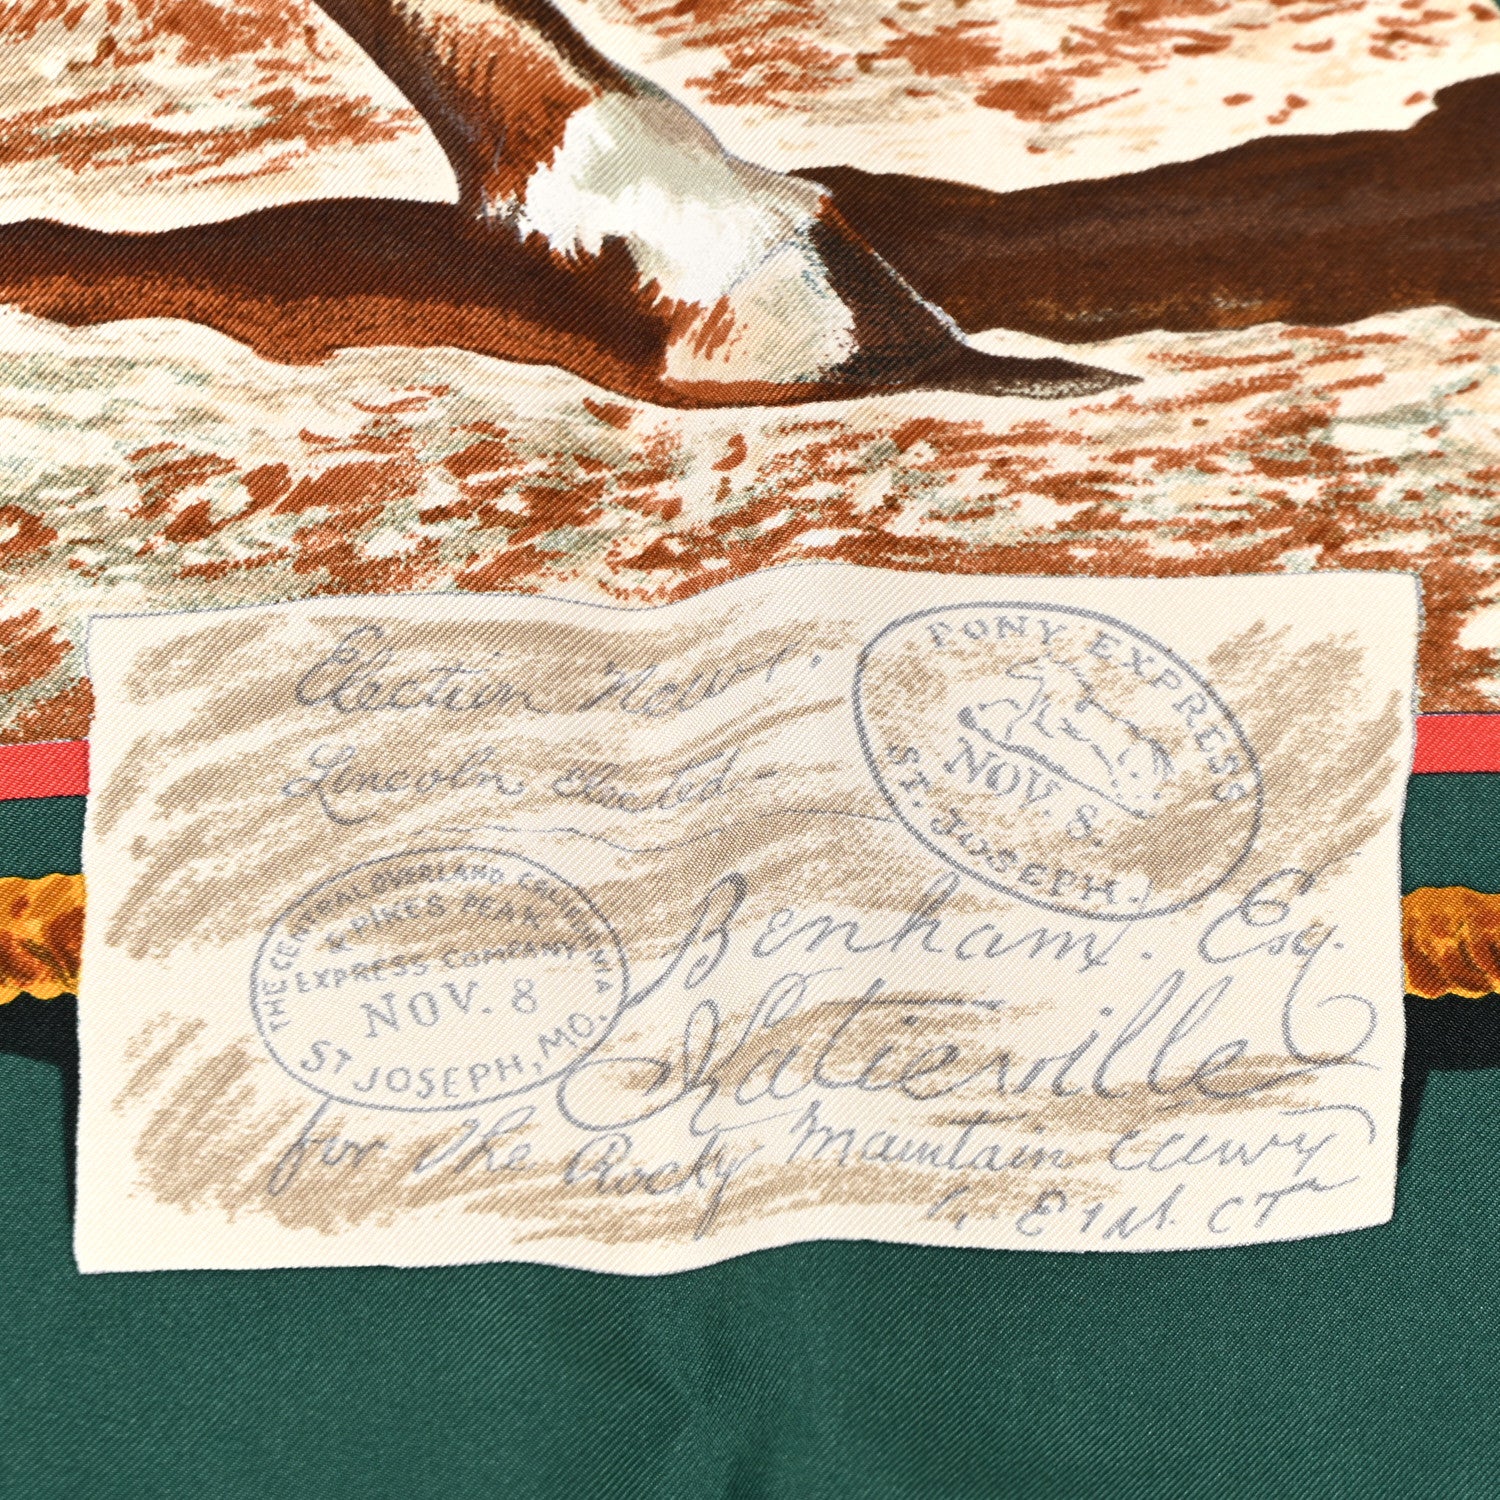 Election News.
Lincoln elected
PONY EXPRESS
NOV. 8.
ST. JOSEPH.
THE CENTRAL OVERLAND CALIFORNIA
& PIKES PEAK
EXPRESS COMPANY
NOV. 8
ST JOSEPH, MO.
Benham. Esq.
for the Rocky Mountain